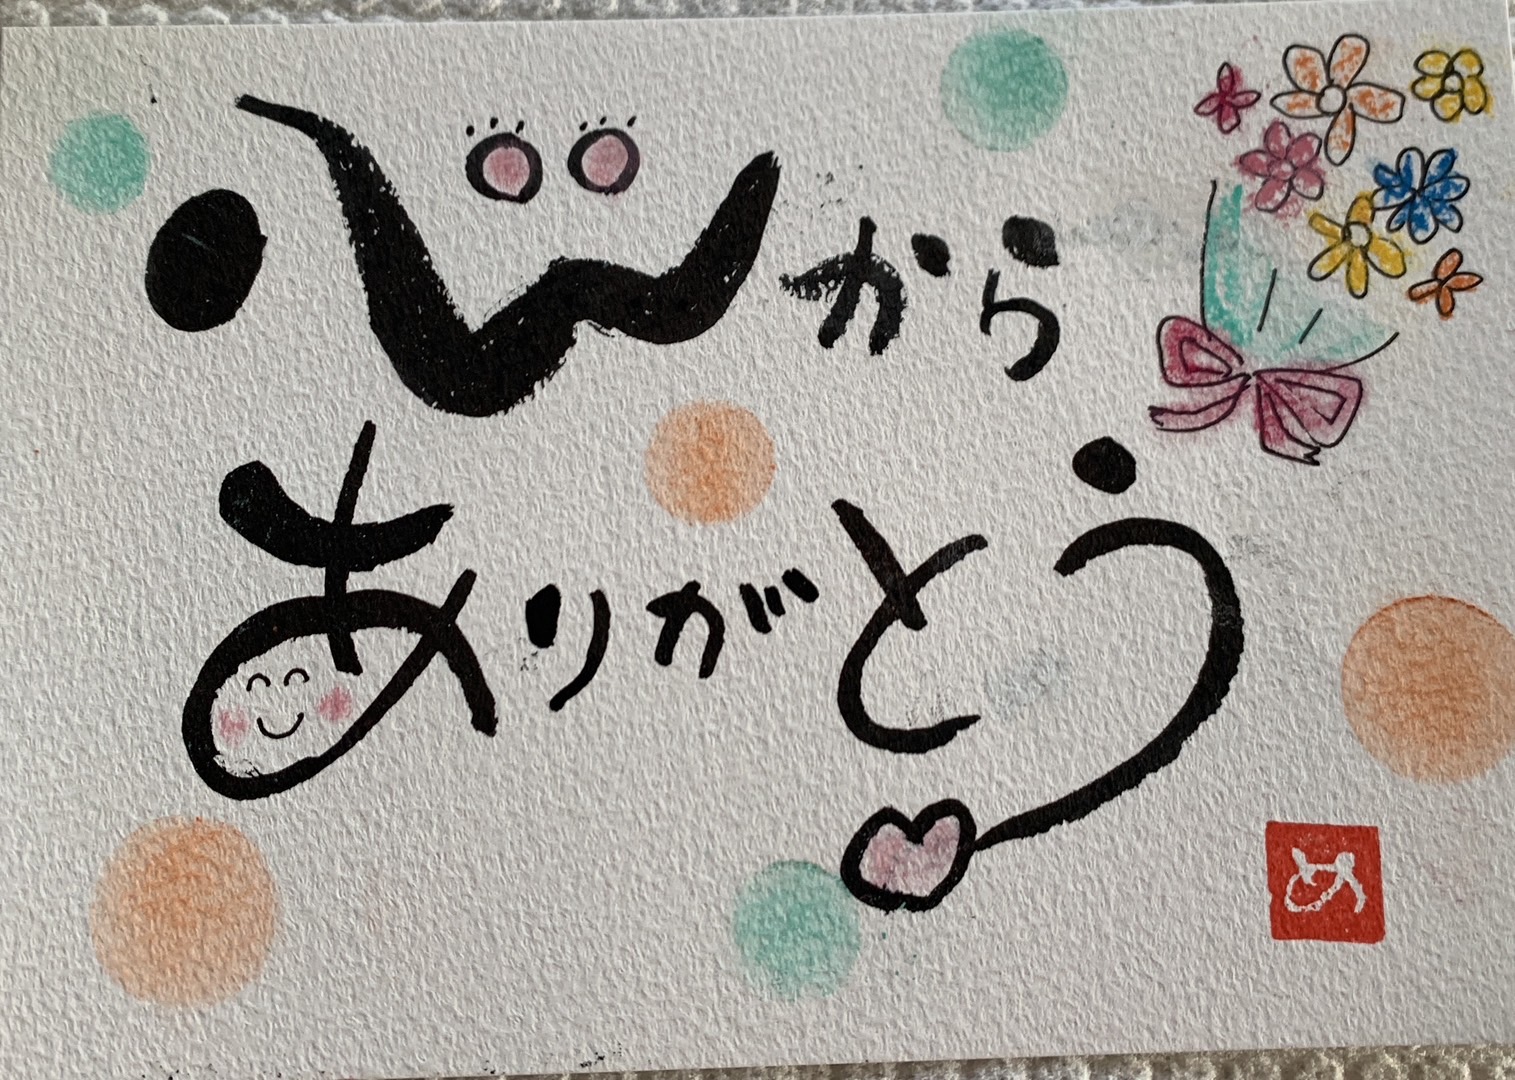 心から
ありがとう
め